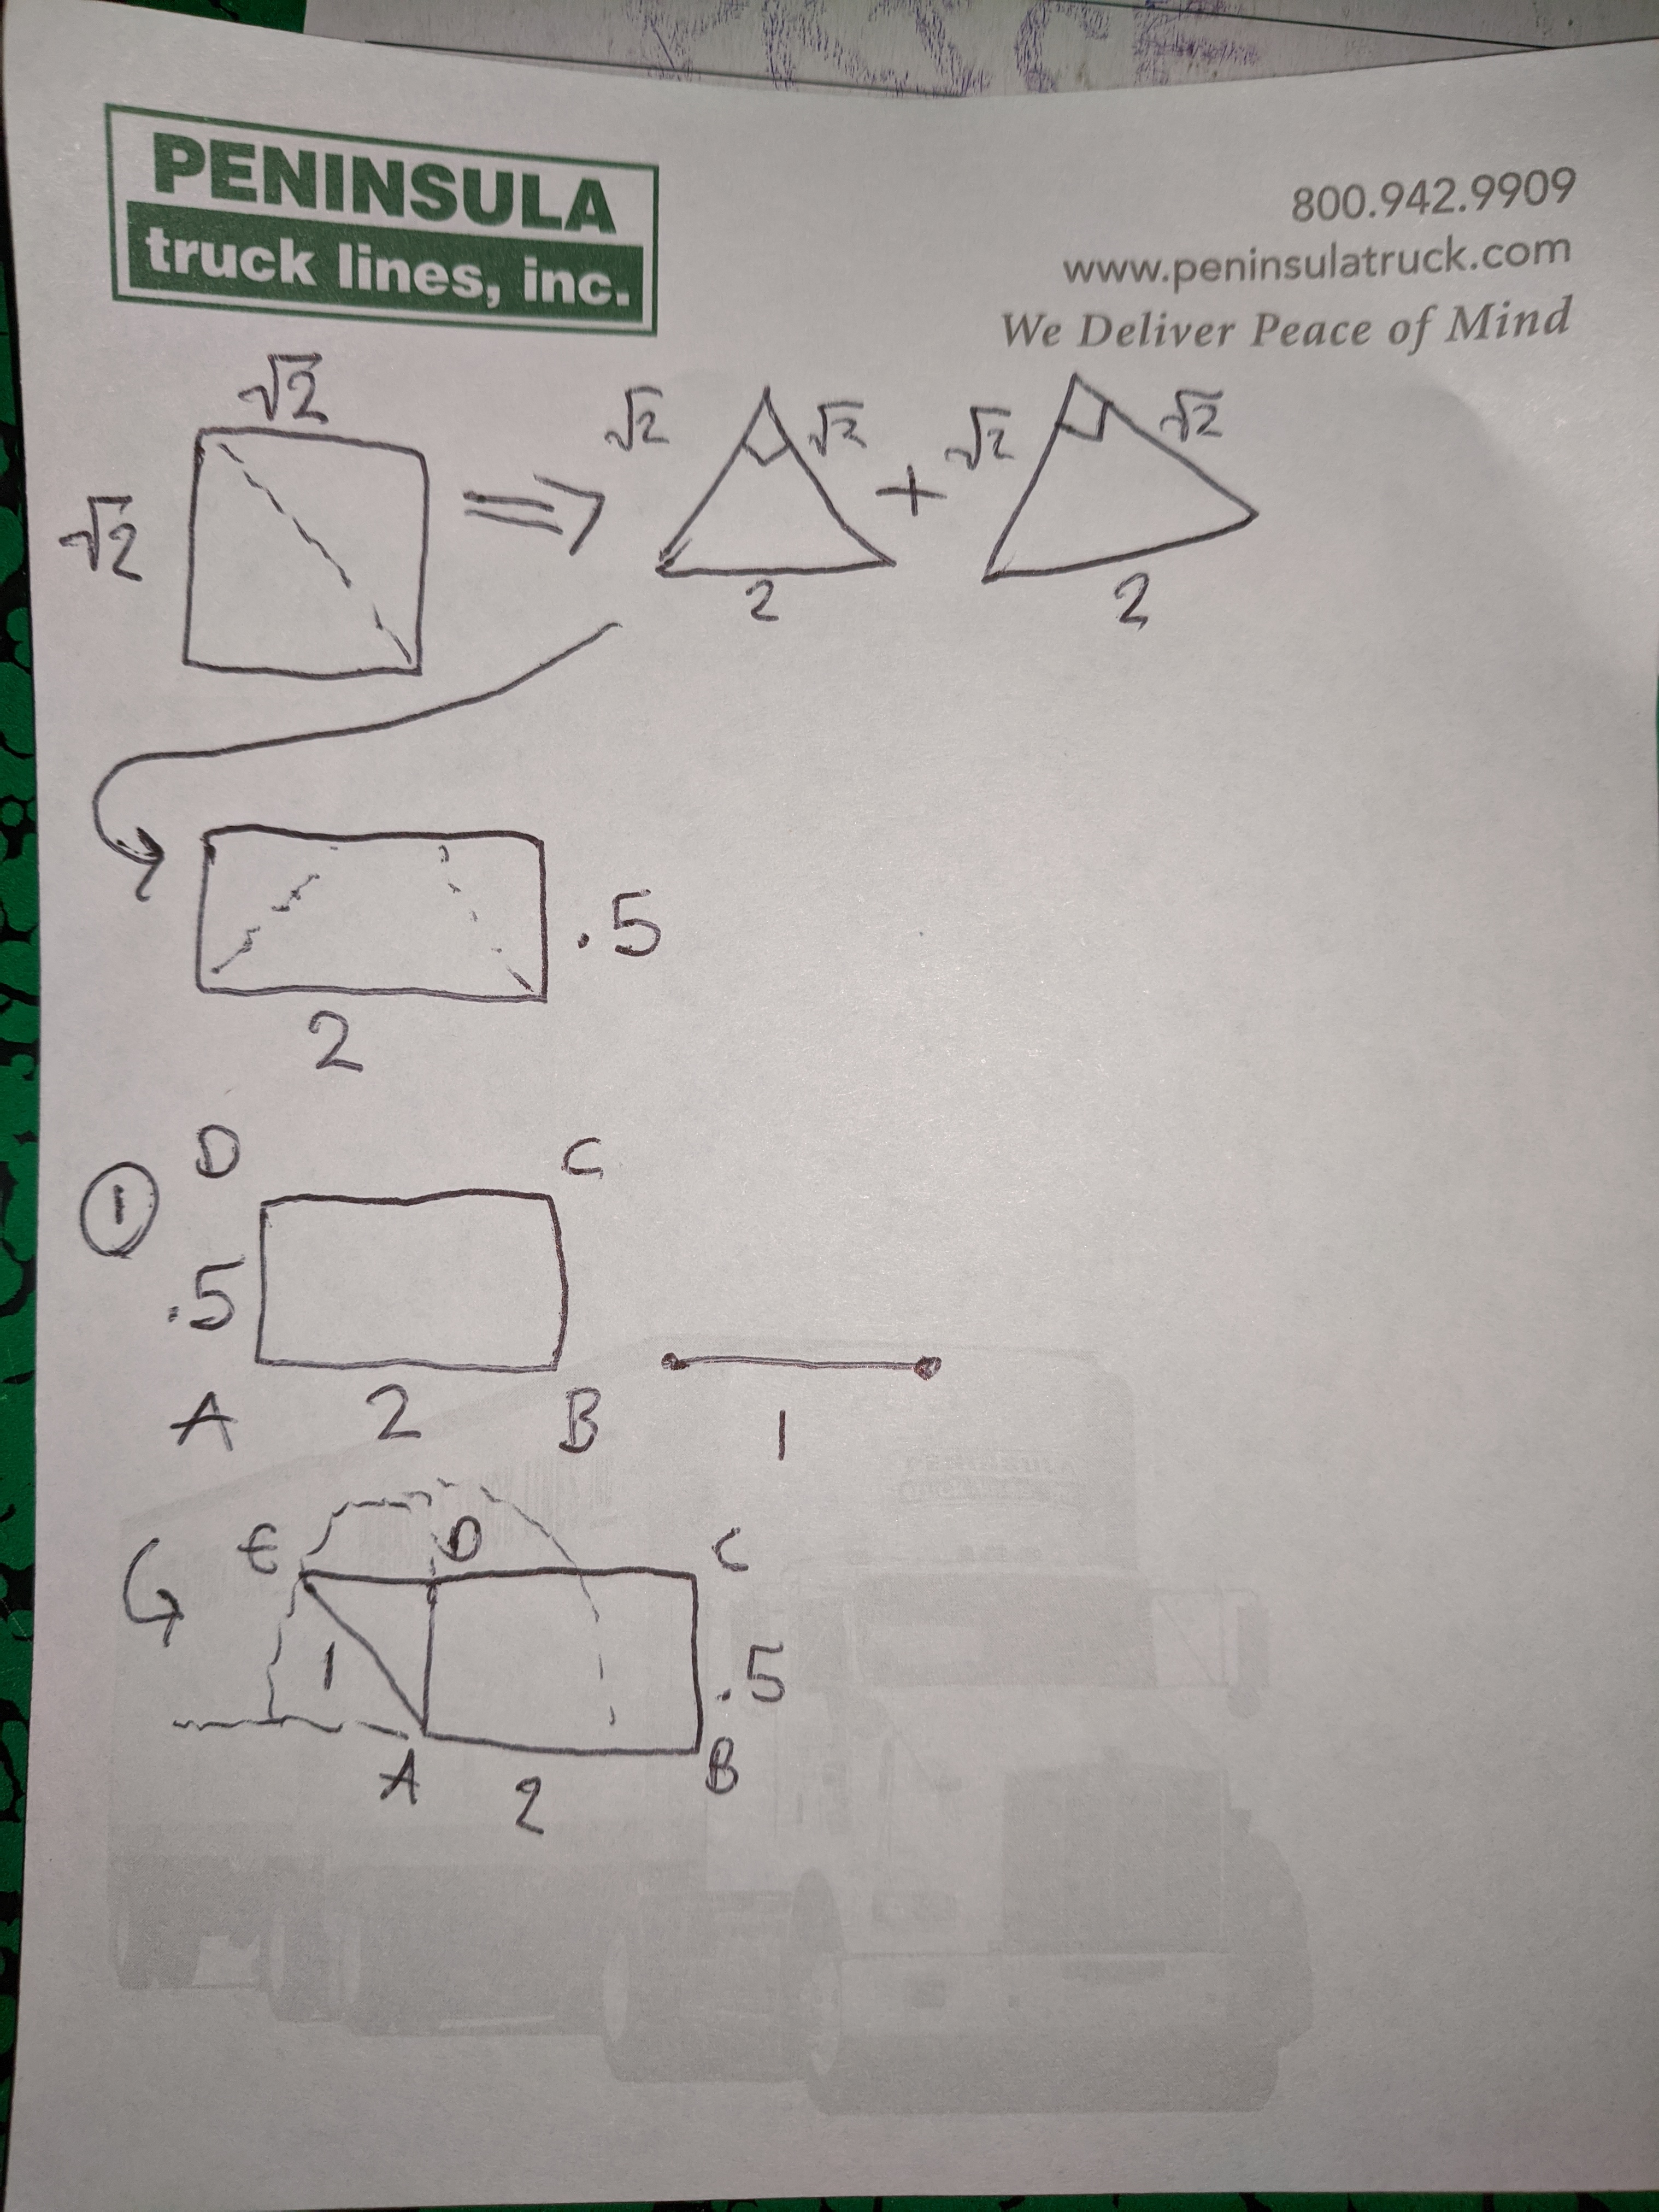 PENINSULA
truck lines, inc.
800.942.9909
www.peninsulatruck.com
We Deliver Peace of Mind
√2 √2 √2 √2 √2
√2 ⇒ +
2 2
.5
2
D C
①
.5
A 2 B 1
E D C
1 .5
A 2 B